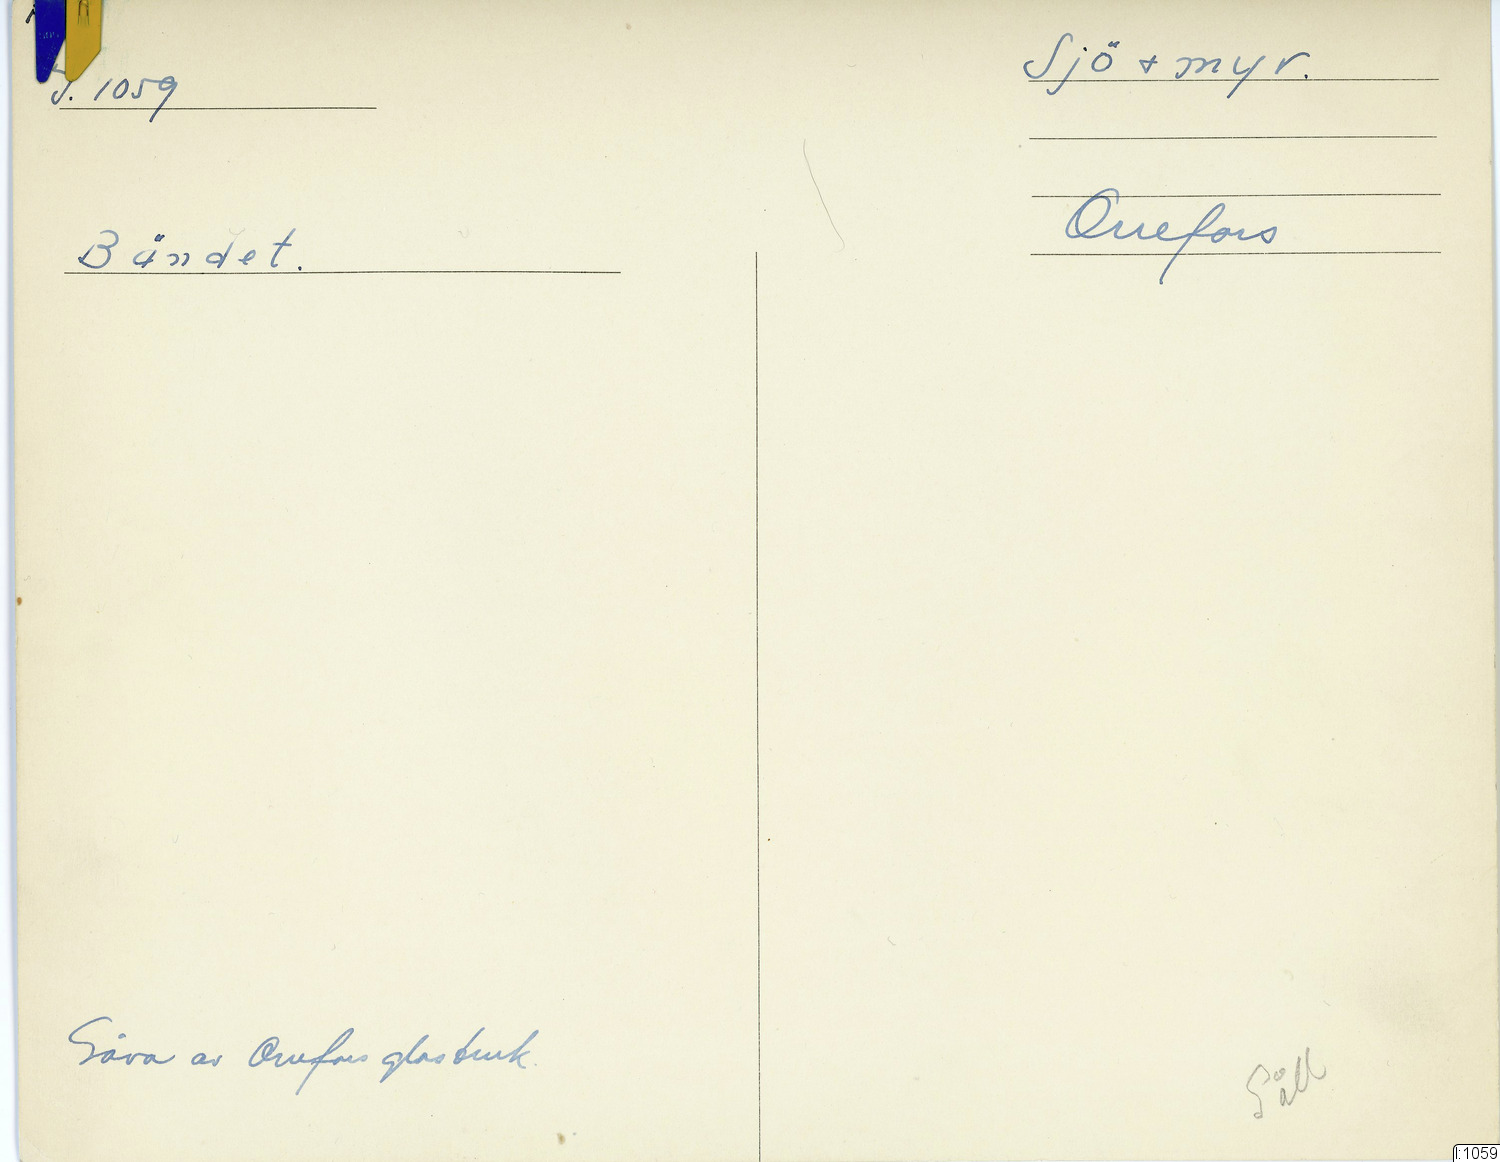 J. 1059
Sjö + myr.
Orrefors
Bändet.
Gåva av Orrefors glasbruk.
Gåll
I:1059